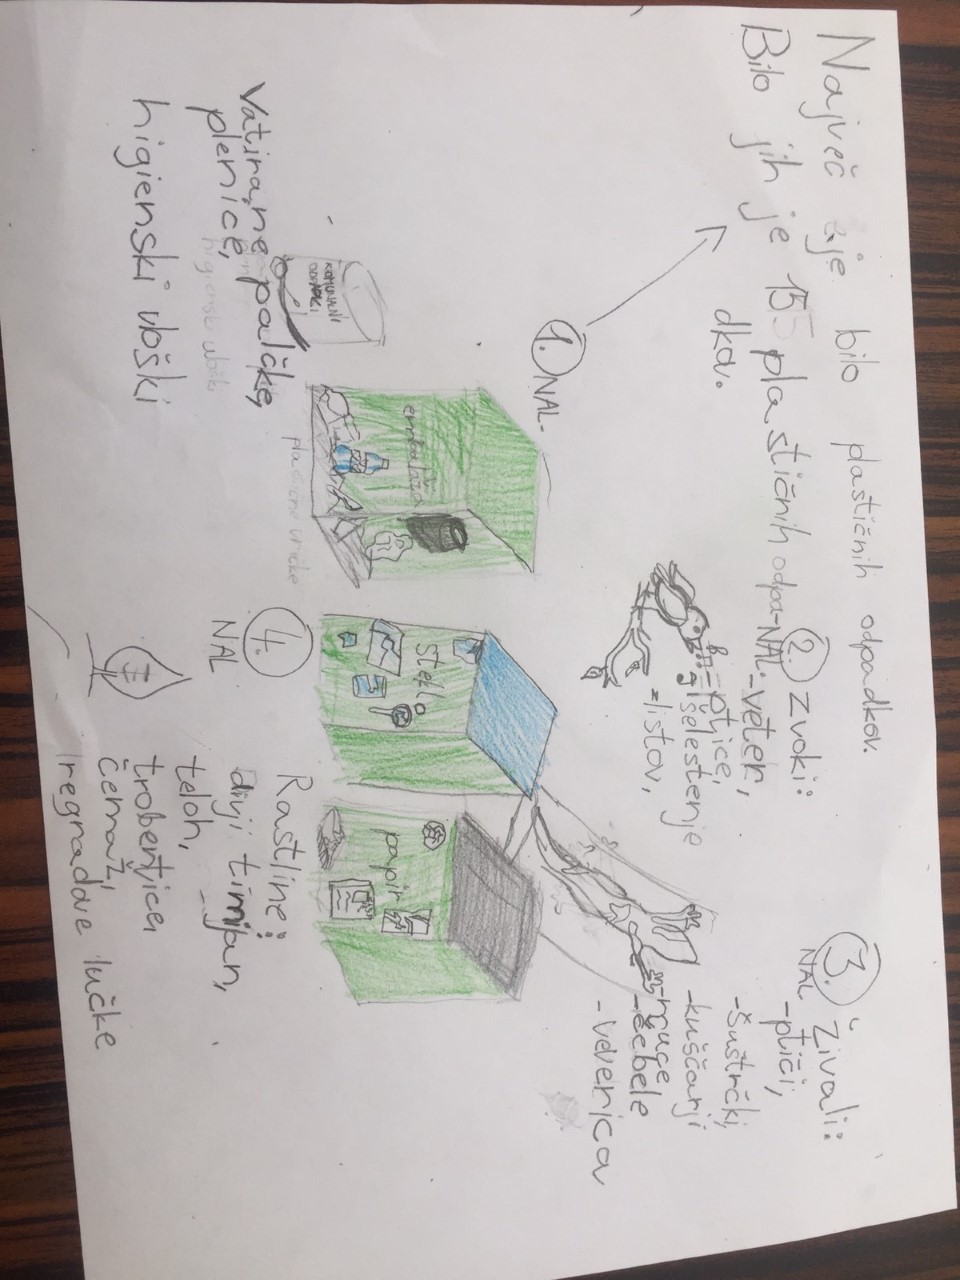 Največ je bilo plastičnih odpadkov.
Bilo jih je 155 plastičnih odpa-
dkov.
1. NAL-
2. Zvoki:
NAL-veter,
-ptice,
-šelestenje
listov,
3. Živali:
NAL
-ptiči,
-šuštrčki,
-kuščarji
-muce
-čebele
-veverica
KOMUNALNI
ODPADKI
Vatirane palčke,
plenice,
higienski vložki
higienski vložki
embalaža
plastične vrečke
steklo
papir
4.
NAL
Rastline:
divji timijan,
teloh,
trobentice,
čemaž,
regradove lučke